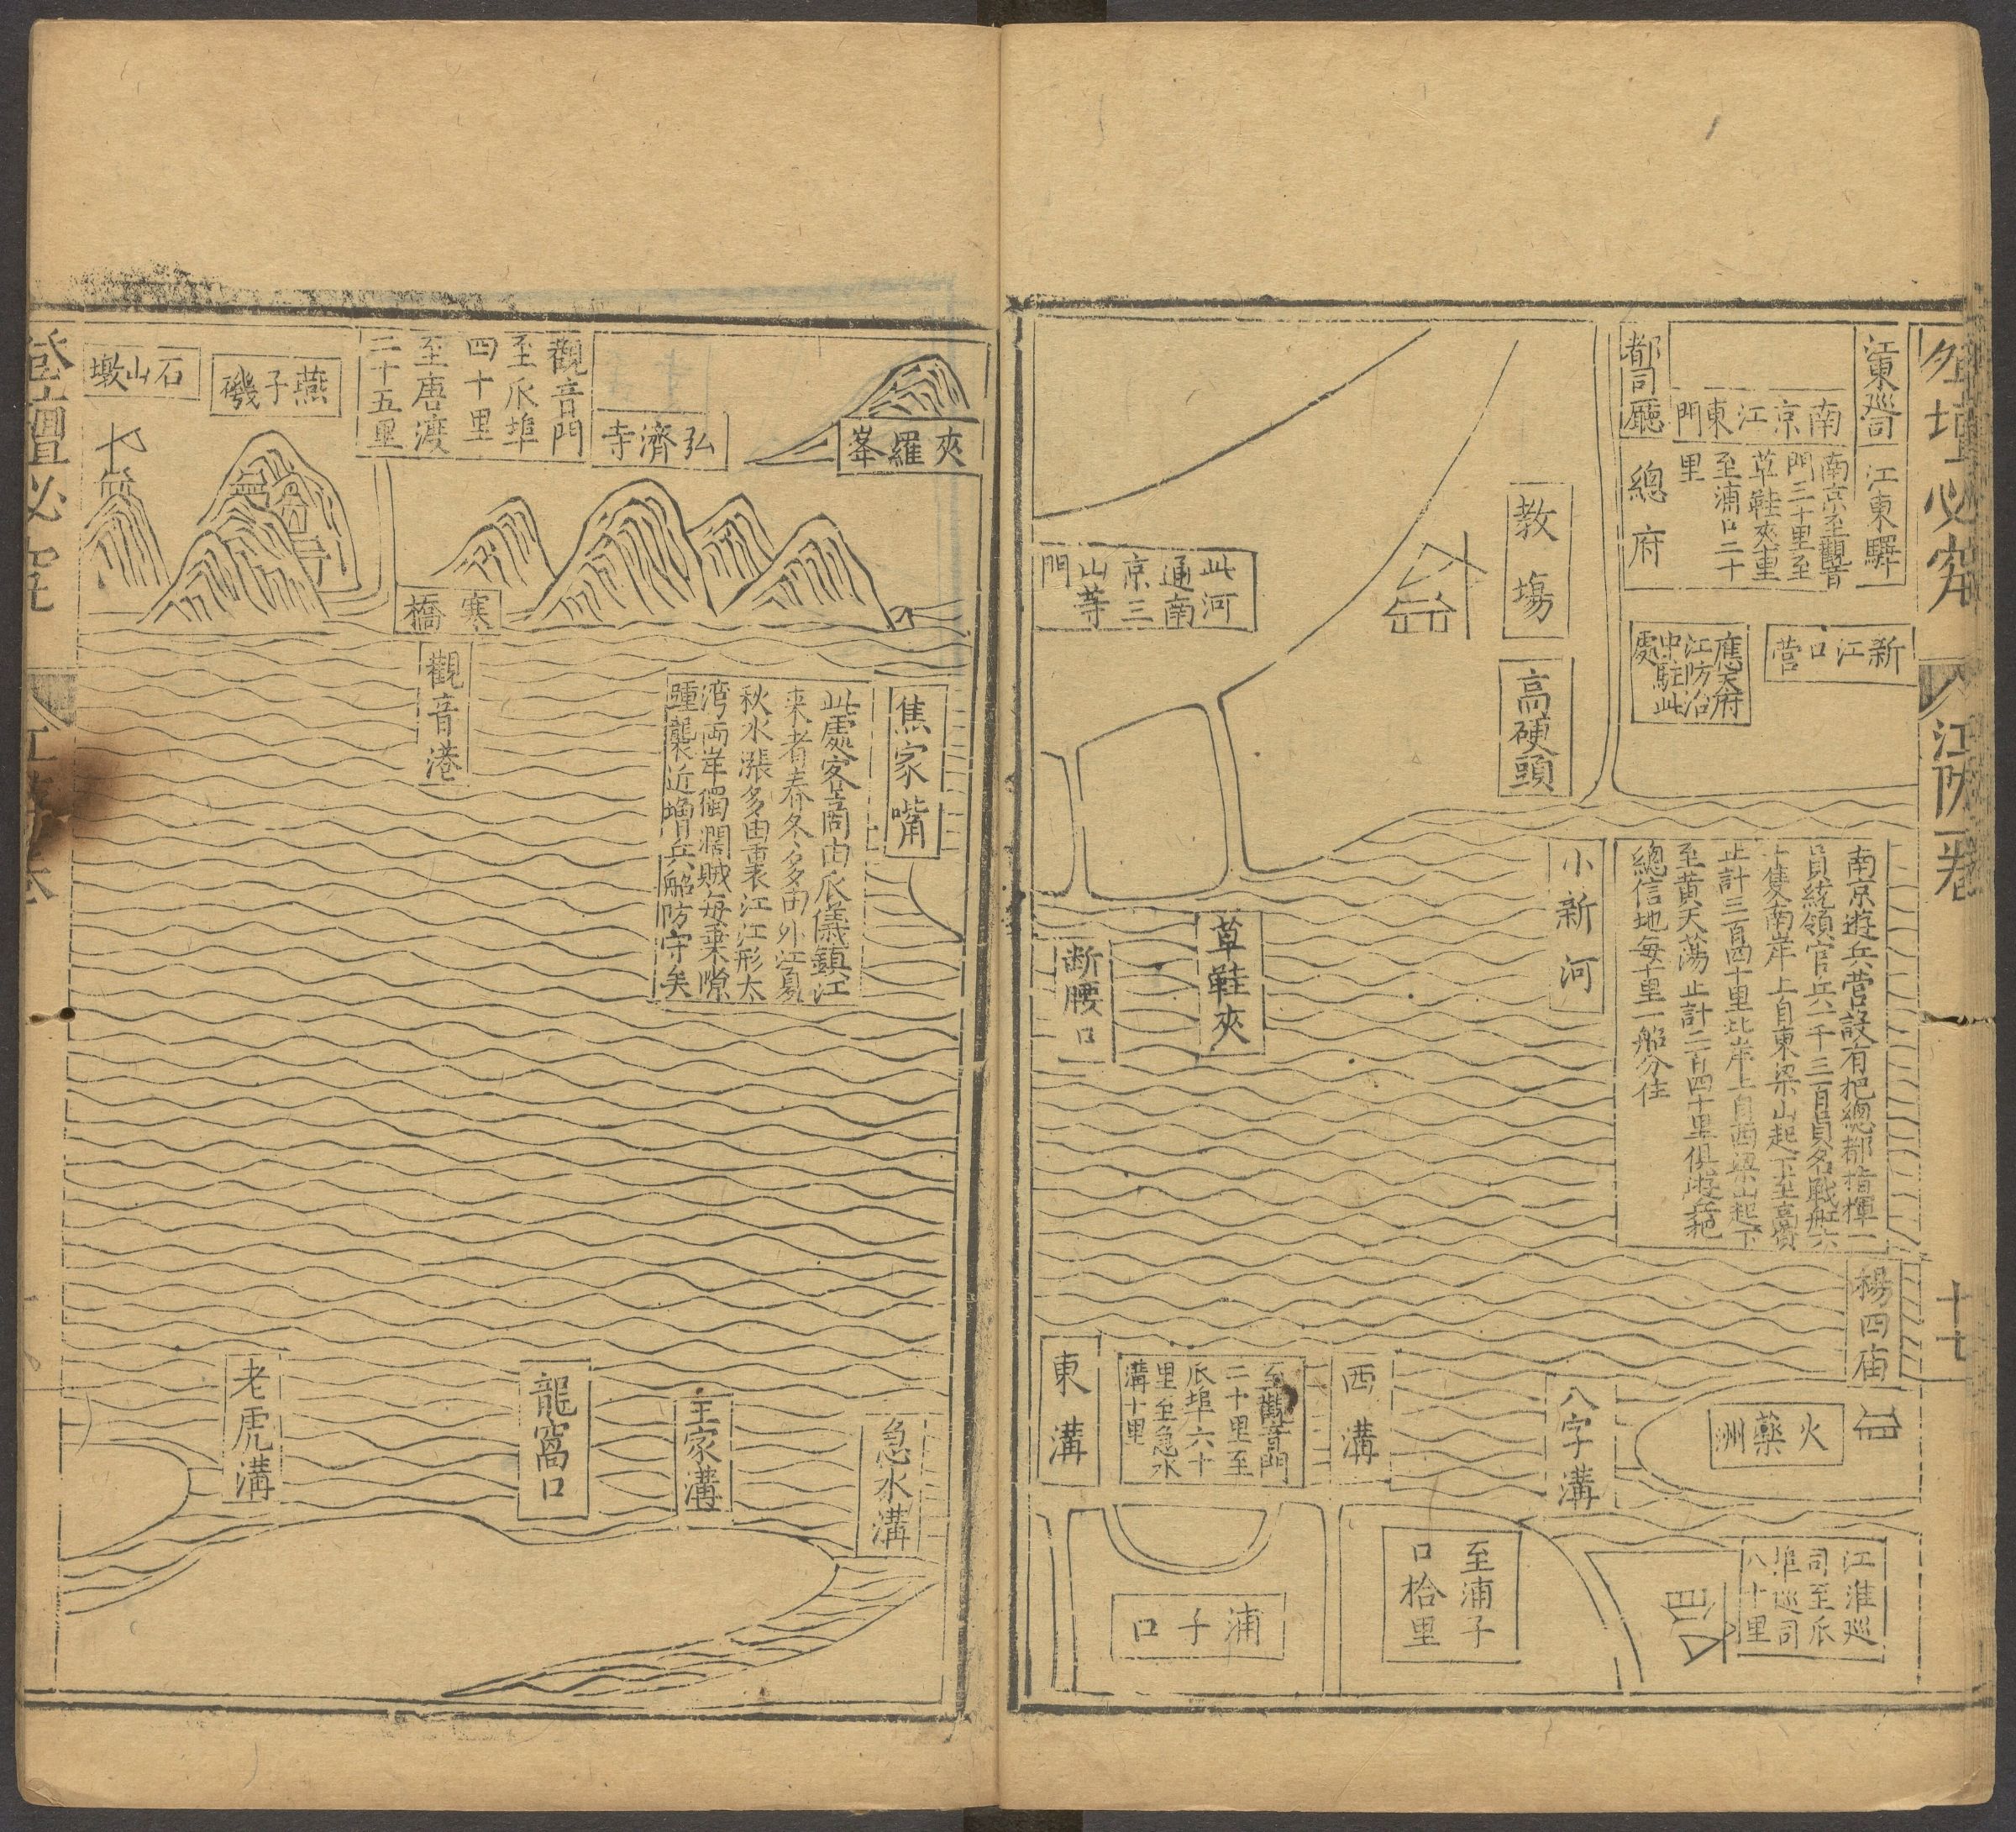 登壇必究
江防一卷
十七
江東巡司
江東驛
南京江東門
南京至觀音
門三十里至
草鞋夾重
至浦口二十
里
都司廳
總府
新江口營
應天府
江防治
中駐此
處
教塲
高硬頭
此河
通南
京三
山等
門
小新河
南京遊兵營設有把總都指揮一
員統領官兵一千三百員名戰船六
十隻南岸上自東梁山起下至高資
止計三百四十里北岸上自西梁山起下
至黄天蕩止計二百四十里俱遊兵把
總信地每十里一船分住
草鞋夾
断腰口
楊四庙
火藥洲
八字溝
西溝
至觀音門
二十里至
瓜埠六十
里至急水
溝十里
東溝
江淮巡
司至瓜
埠巡司
八十里
至浦子
口拾里
浦子口
夾羅峯
弘濟寺
觀音門
至瓜埠
四十里
至唐渡
二十五里
燕子磯
石山墩
寒橋
觀音港
焦家嘴
此處客商由瓜儀鎮江
来者春冬多由外江夏
秋水漲多由裏江江形太
湾両岸獨濶賊每乗隙
踵襲近增兵船防守矣
急水溝
王家溝
龍窩口
老虎溝
登壇必究